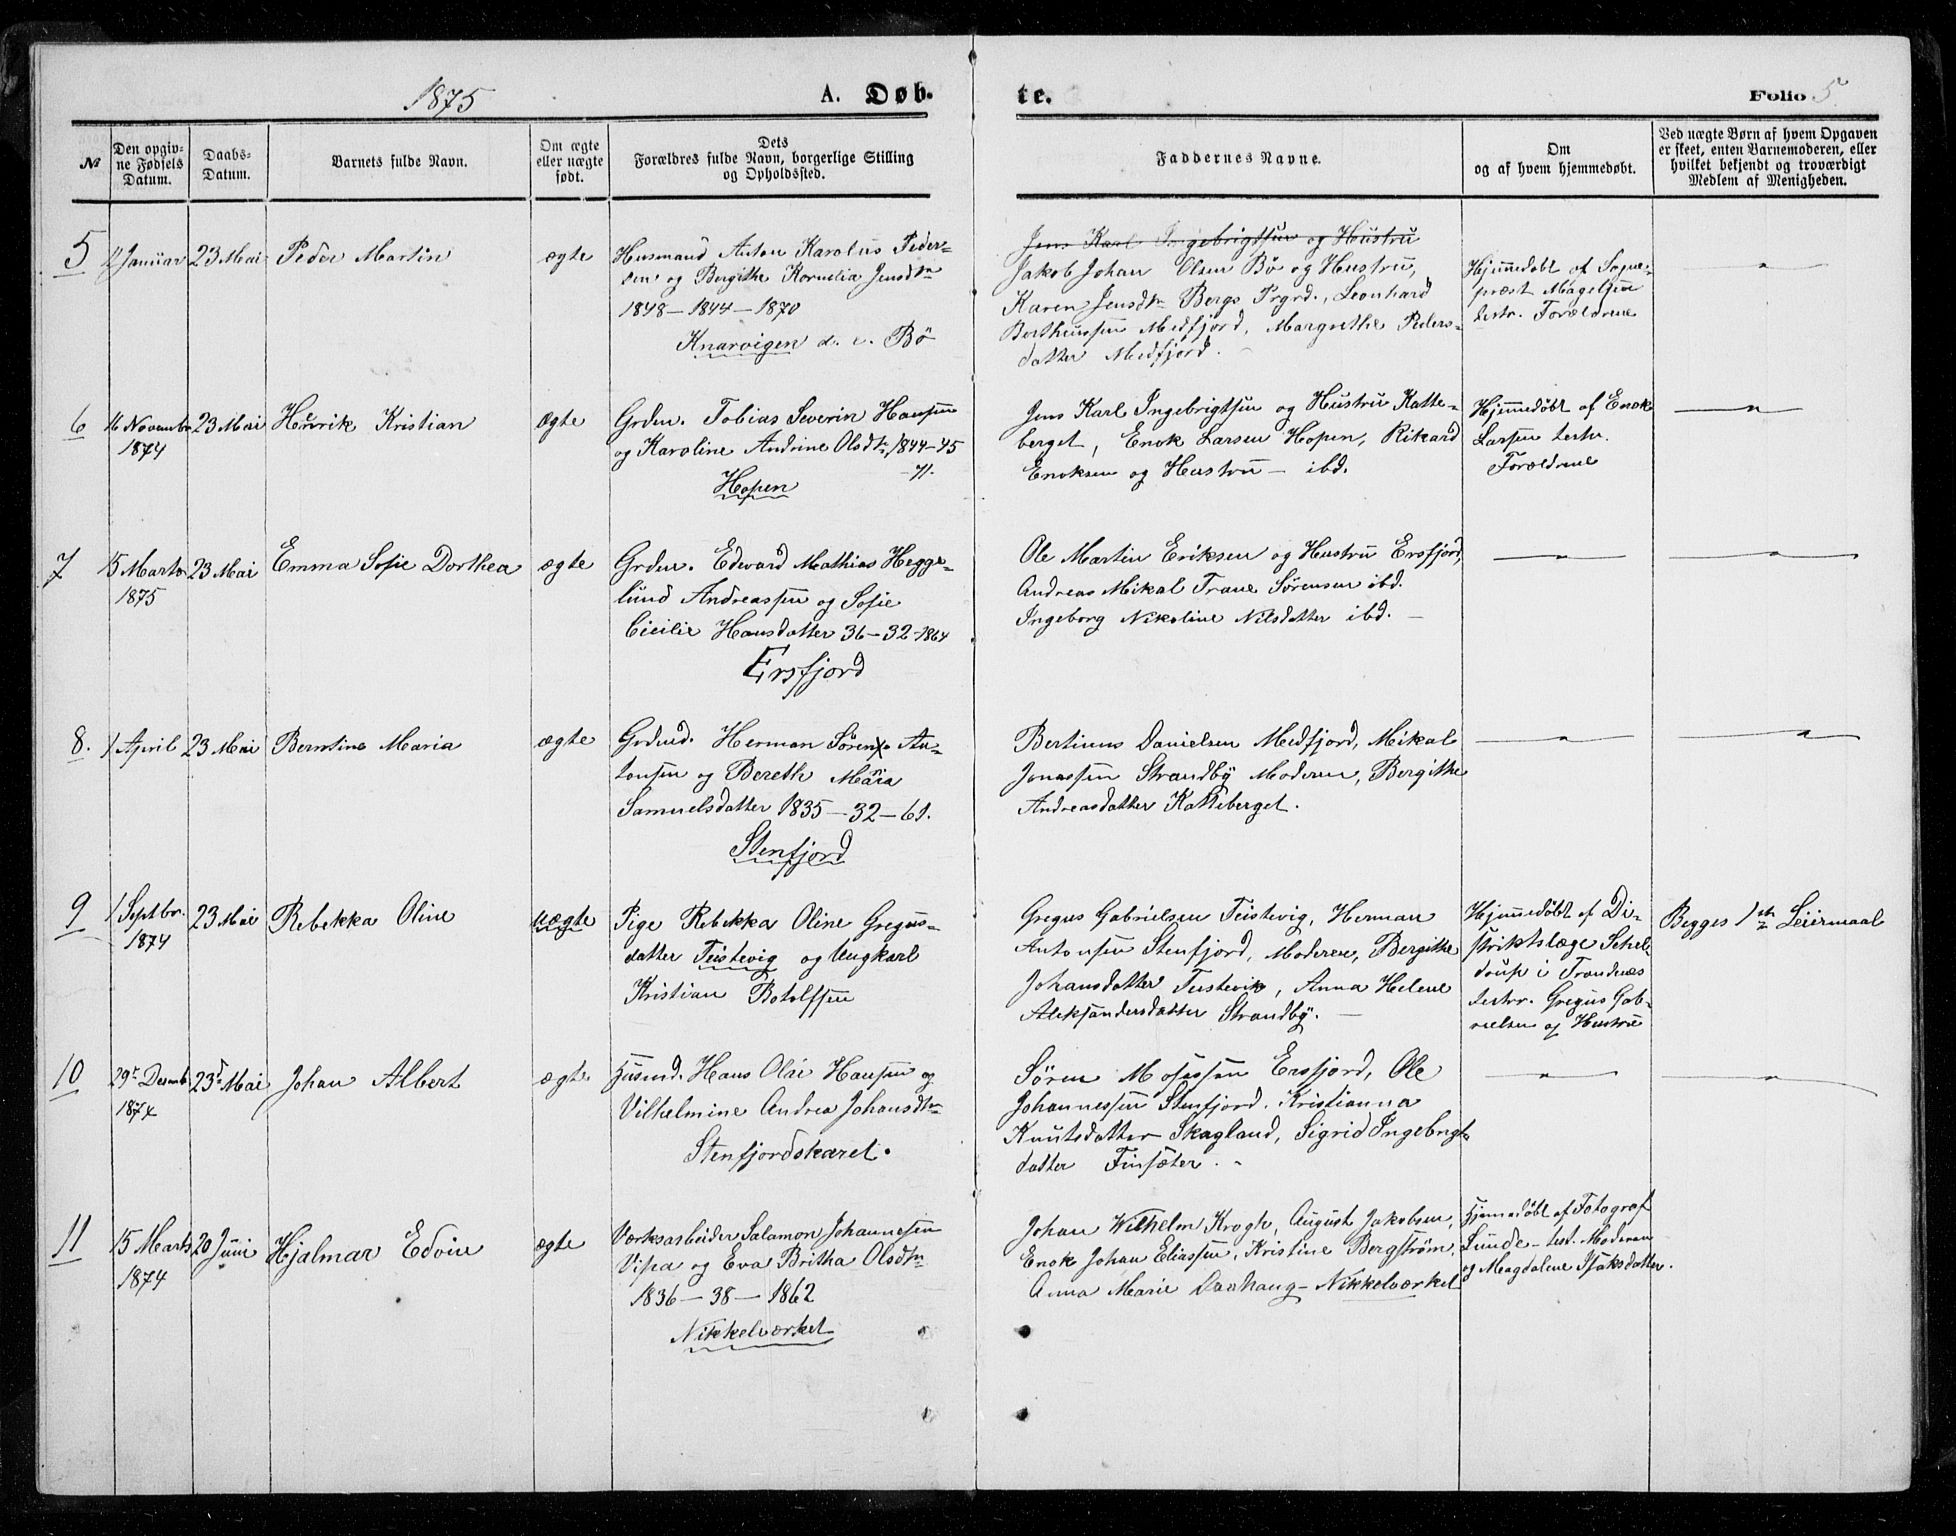 1875
A. Døb-
te.
Folio 5.
№
Den opgiv-
ne Fødsels
Datum.
Daabs-
Datum.
Barnets fulde Navn.
Om ægte
eller uægte
født.
Dets
Forældres fulde Navn, borgerlige Stilling
og Opholdssted.
Faddernes Navne.
Om
og af hvem hjemmedøbt.
Ved uægte Børn af hvem Opgaven
er skeet, enten Barnemoderen, eller
hvilket bekjendt og troværdigt
Medlem af Menigheden.
5
Januar
23 Mai
Peder Martin
ægte
Husmand Anton Karolus Peder-
sen og Bergithe Kornelia Jensdtr
1848 – 1844 – 1870
Knarvigen u. e. Bö
Jens Karl Ingebrigtsen og Hustru
Jakob Johan Olsen Bö og Hustru,
Karen Jensdtr Bergs Prgrd., Leonhard
Bertheussen Medfjord, Margrethe Peders-
datter Medfjord.
Hjemmedøbt af Sogne-
præst Magelssen
testr. Forældrene
6
16 Novembr
1874
23 Mai
Henrik Kristian
Ægte
Grdm. Tobias Severin Hansen
og Karoline Andrine Olsdtr, 1844–45
–71.
Hopen
Jens Karl Ingebrigtsen og Hustru Katte-
berget, Enok Larsen Hopen, Rikard
Enoksen og Hustru – ibd.
Hjemmedøbt af Enok
Larsen testr.
Forældrene
7
15 Marts
1875
23 Mai
Emma Sofie Dorthea
ægte
Grdm. Edevard Mathias Hegge-
lund Andreassen og Sofie
Cicilie Hansdatter 36–32–1864
Ersfjord
Ole Martin Eriksen og Hustru Ersfjord,
Andreas Mikal Trane Sørensen ibd.
Ingeborg Nikoline Nilsdatter ibd. –
8.
1 April
23 Mai
Berntine Maria
ægte
Grdmd. Herman Sören An-
tonsen og Bereth Maria
Samuelsdatter 1835 – 32 – 61.
Stenfjord
Bertinus Danielsen Medfjord, Mikal
Jonassen Strandby Moderen, Bergithe
Andreasdatter Katteberget.
9
1 Septbr.
1874
23 Mai
Rebekka Oline
uægte
Pige Rebekka Oline Gregus-
datter Teistevig og Ungkarl
Kristian Botolfsen
Gregus Gabrielsen Teistevig, Herman
Antonsen Stenfjord, Moderen, Bergithe
Johansdatter Teistevik, Anna Helene
Aleksandersdatter Strandby. –
Hjemmedøbt af Di-
striktslæge Schel-
drup i Trondenæs
testr. Gregus Gab-
rielsen og Hustru
Begges 1ste Leiermaal
10
29r Decemb
1874
23d Mai
Johan Albert
ægte
Husmd. Hans Olai Hansen og
Vilhelmine Andrea Johansdtr
Stenfjordskaret.
Sören Mosessen Ersfjord, Ole
Johannessen Stenfjord. Kristianna
Knutsdatter Skagland, Sigrid Ingebrigt-
datter Finsæter.
11
15 Marts
1874
20 Juni
Hjalmar Edvin
ægte
Værksarbeider Salamon Johannesen
Vipa og Eva Britha Olsdtr
1836 – 38 – 1862
Nikkelværket
Johan Wilhelm Krogh, August Jakobsen,
Enok Johan Eliassen, Kristine Bergström,
Anna Marie Daahaug – Nikkelværket
Hjemmedøbt af Fotograf
Lunde – test. Moderen
og Magdalene Isaksdatter.